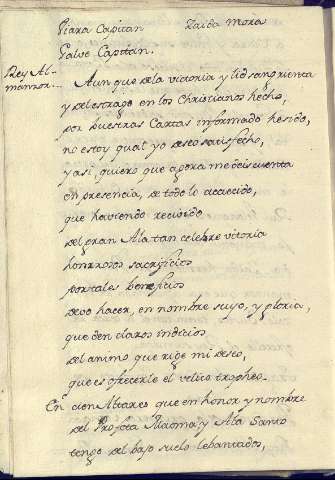 Ziara Capitan Zaida Mora
Galvo Capitan.
Rey Al-
manzor...
Aun que de la victoria y lid sangrienta
y del estrago en los Christianos hecho,
por buestras Cartas informado he sido,
no estoy qual yo deseo satisfecho,
y asi, quiero que agora me deis cuenta
en presencia, de todo lo acaecido,
que haviendo recivido
del gran Ala tan celebre vitoria
honrrosos sacrificios
por tales beneficios
devo hacer, en nombre suyo, y gloria,
que den claros indicios
del animo que rige mi deseo,
que es ofrecerle el velico tropheo.
En cien Altares que en honor y nombre
del Profeta Maoma y Ala Santo
tengo del bajo suelo lebantados,